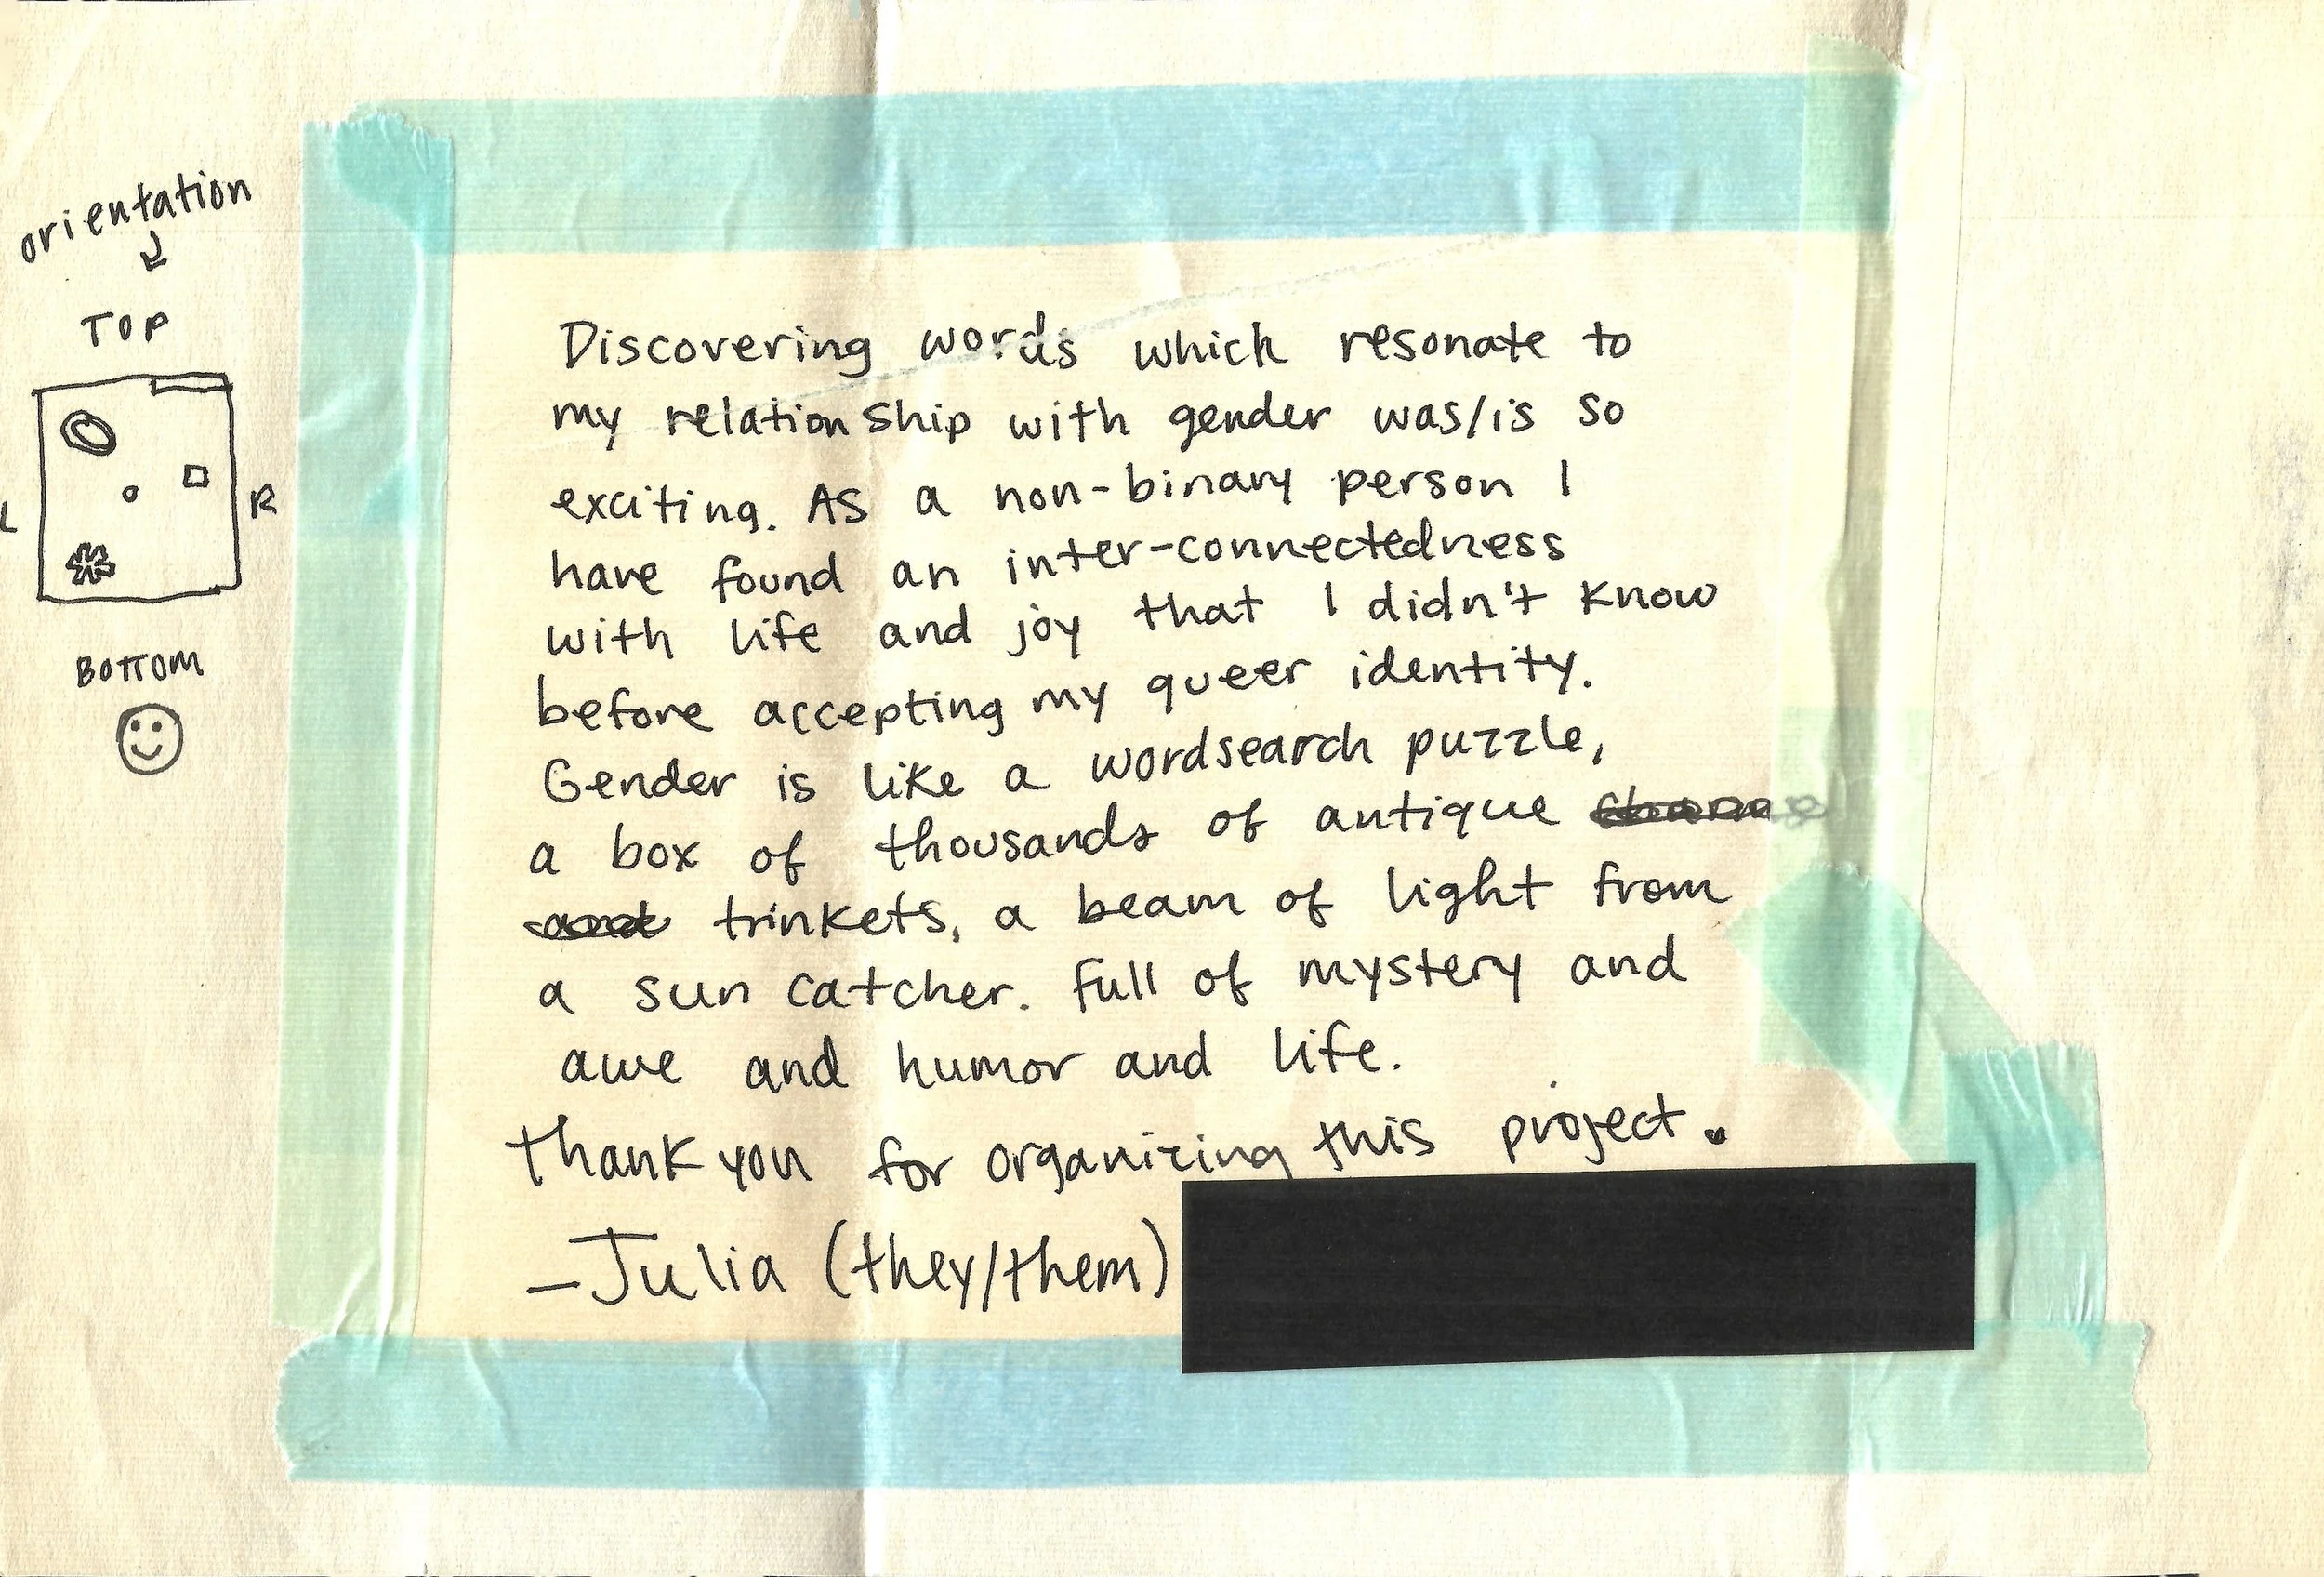 orientation
TOP
L
R
BOTTOM
Discovering words which resonate to
my relationship with gender was/is so
exciting. As a non-binary person I
have found an inter-connectedness
with life and joy that I didn't know
before accepting my queer identity.
Gender is like a wordsearch puzzle,
a box of thousands of antique
trinkets, a beam of light from
a sun catcher. Full of mystery and
awe and humor and life.
Thank you for organizing this project.
-Julia (they/them)